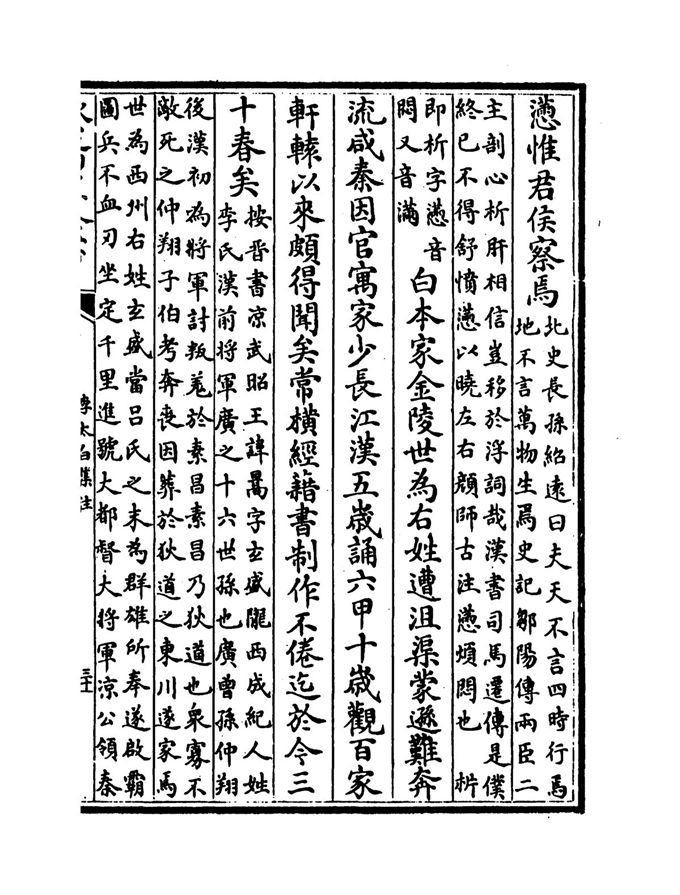 懣惟君侯察焉北史長孫紹遠曰夫天不言四時行焉
地不言萬物生焉史記鄒陽傳兩臣二
主剖心析肝相信豈移於浮詞哉漢書司馬遷傳是僕
終已不得舒憤懣以曉左右顔師古注懣煩悶也㭊
即析字懣音
悶又音滿
白本家金陵世為右姓遭沮渠蒙遜難奔
流咸秦因官寓家少長江漢五歲誦六甲十歲觀百家
軒轅以來頗得聞矣常橫經藉書制作不倦迄於今三
十春矣按晉書凉武昭王諱暠字玄盛隴西成紀人姓
李氏漢前將軍廣之十六世孫也廣曾孫仲翔
後漢初為將軍討叛羗於素昌素昌乃狄道也衆寡不
敵死之仲翔子伯考奔喪因葬於狄道之東川遂家焉
世為西州右姓玄盛當吕氏之末為群雄所奉遂啟霸
圖兵不血刃坐定千里進號大都督大將軍涼公領秦
李太白集注
三十